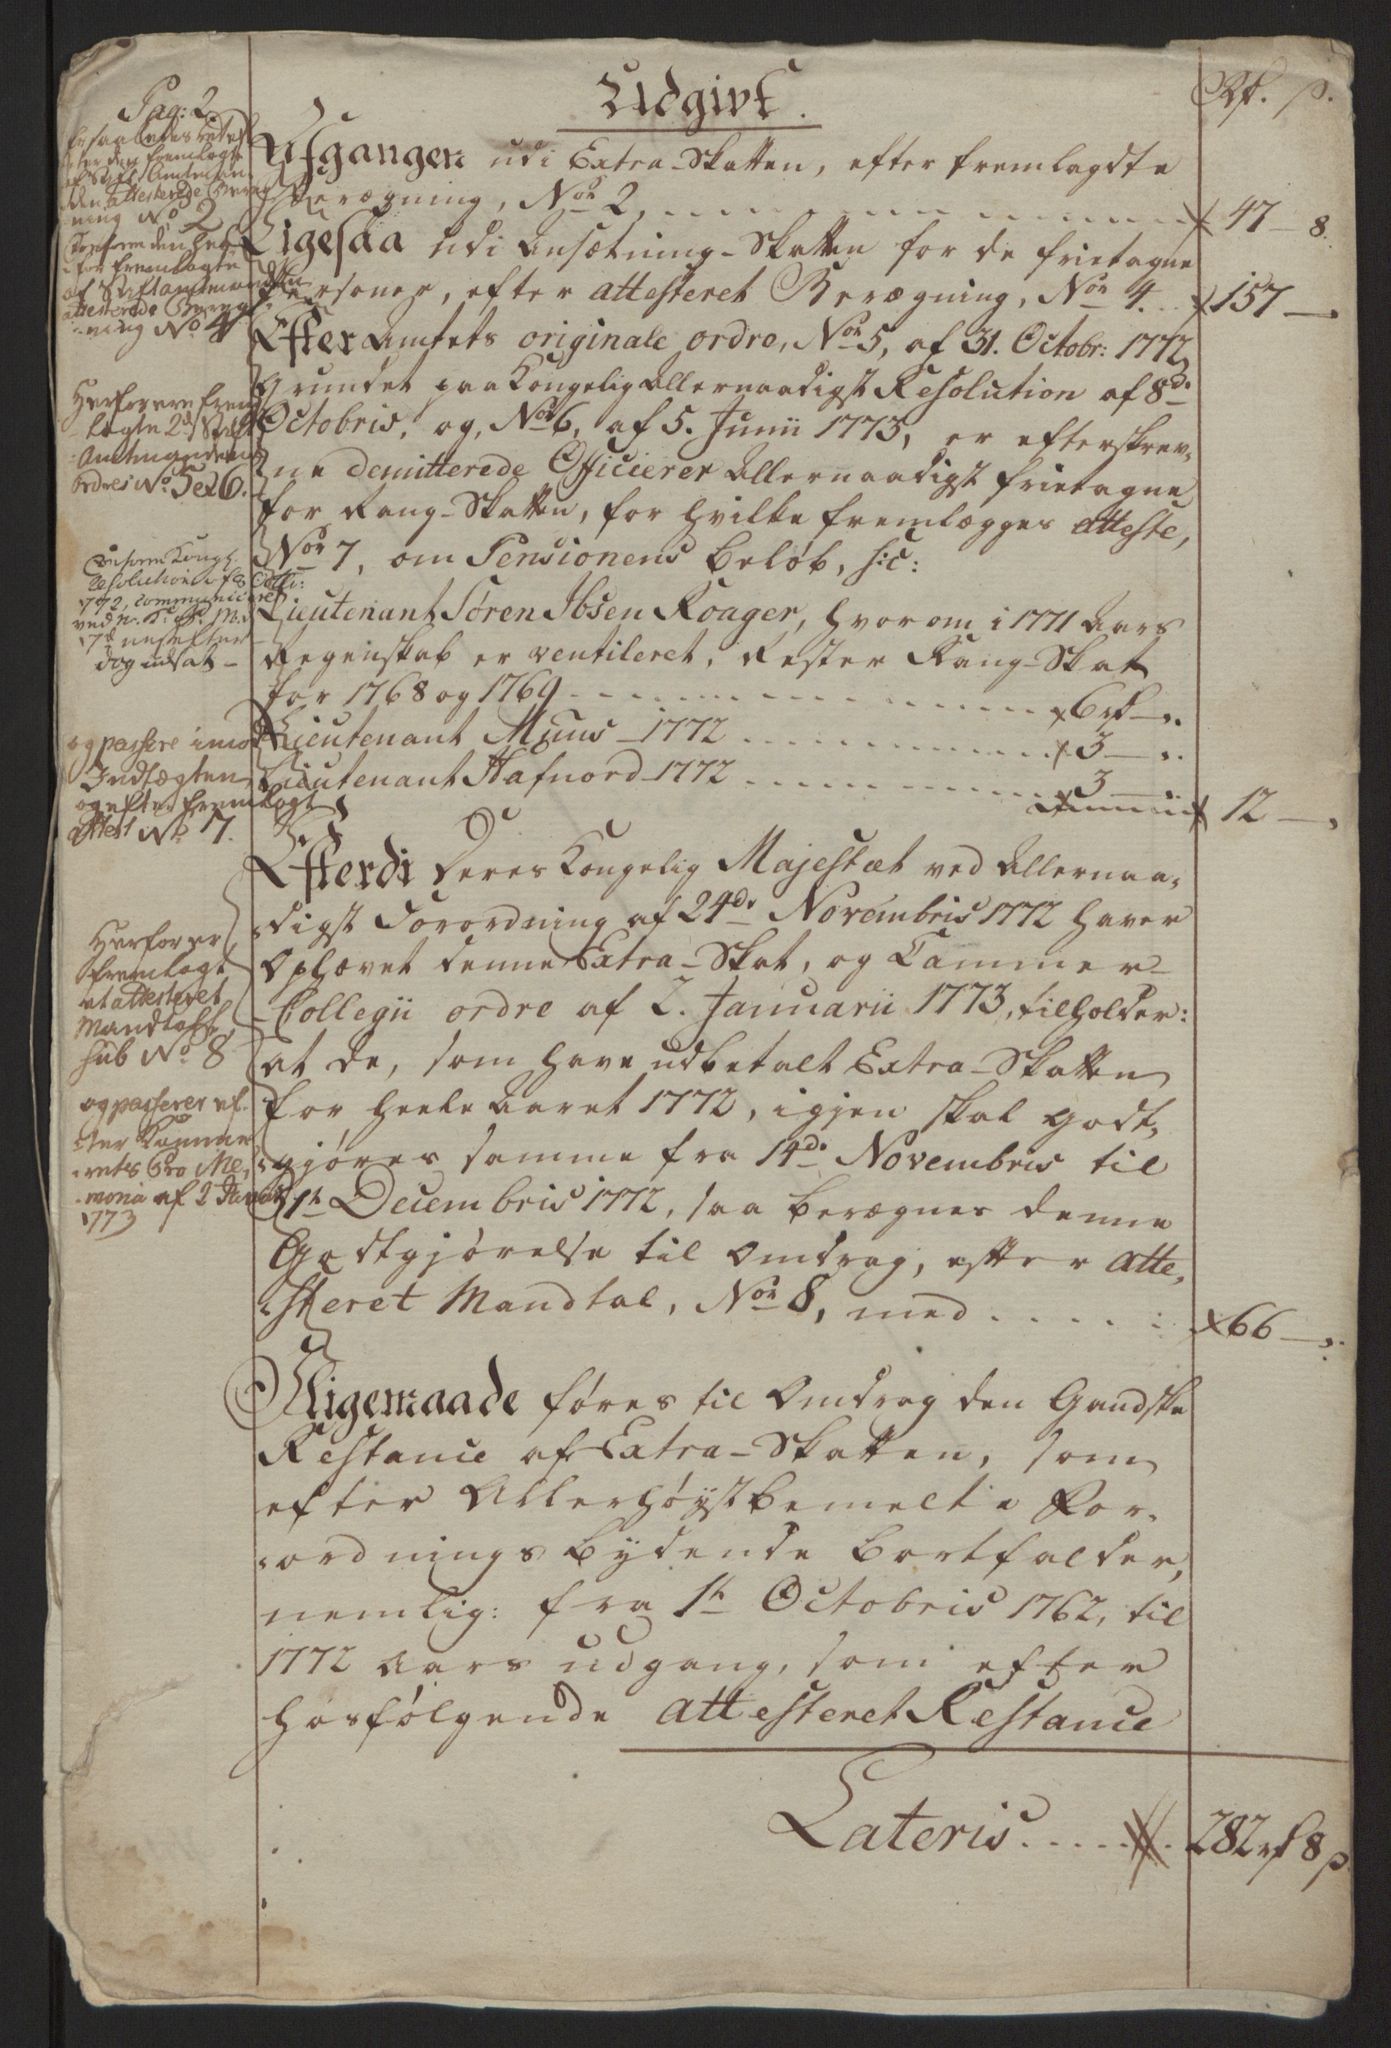 Udgivt.
Rd. s.
Pag: 2.
Afgangen udi Extra-Skatten, efter fremlagdte
Beregning, Nor 2, 47 – 8.
Ligesaa udi Ansætnings-Skatten for de frietagne
Personer, efter attesteret Beregning, Nor 4. 157 –
Efter Amtets originale ordre, Nor 5, af 31. Octobr: 1772
Grundet paa Kongelig Allernaadigst Resolution af 8de
Octobris, og, Nor 6, af 5. Junii 1773, er efterskrev-
ne demitterede Officierer Allernaadigst frietagne
for Rang-Skatten, for hvilke fremlægges Atteste,
Nor 7, om Pensionens Beløb, s:c:
Lieutenant Søren Ibsen Koager, hvorom i 1771 Aars
Regenskab er ventileret, Rester Rang-Skat
for 1768 og 1769 6 rd –
Lieutenant Muus – 1772 3 –
Lieutenant Hafnord – 1772 3 –
12 –
Efterdi Deres Kongelig Majestæt ved Allernaa-
digst Forordning af 24de Novembris 1772 haver
Ophævet denne Extra-Skat, og Cammer-
Collegii ordre af 2. Januarii 1773, tilholder:
at de, som have udbetalt Extra-Skatten
for heele Aaret 1772, igjen skal godt-
gjøres samme fra 14de Novembris til
1te Decembris 1772, saa beregnes denne
Godtgjørelse til Omdrag, efter atte-
steret Mandtal, Nor 8, med 66 –
Ligemaade føres til Omdrag den Gandske
Restance af Extra-Skatten, som
efter Allerhøystbemelte For-
ordnings bydende bortfalder,
nemlig: fra 1te Octobris 1762, til
1772 Aars udgang, som efter
hosfølgende attesteret Restance
Lateris 282 rd 8 s
ersaaledes
efter den fremlagte
af Stift Amtman-
den attesterede Bereg-
ning No 2
Conform den her-
for fremlagte
af Stiftamtmanden
attesterede Bereg-
ning No 4
Herfor ere frem-
lagte 2de Stift
Amtmandens
Ordres No 5 et 6.
Conform Kongl.
Resolution af 8 Octbr:
1772, communiceret
dog udsat –
og passere imod
Indtægten,
og efter fremlagt
Attest No 7.
Herfor er
fremlagt
et attesteret
Mandtal
sub No 8
og passerer ef-
ter Camme-
rets Pro Me-
moria af 2 Januar
1773